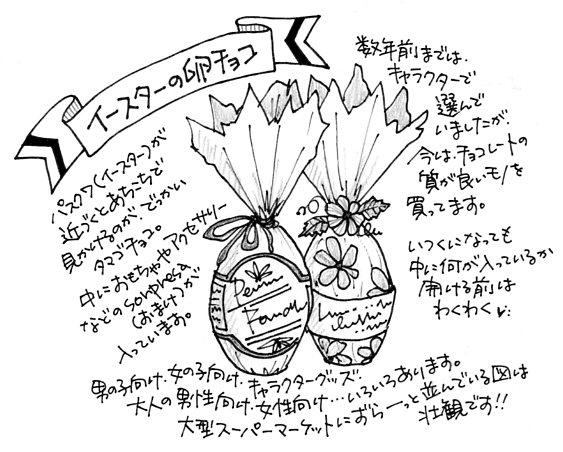 イースターの卵チョコ
パスクワ(イースター)が
近づくとあちこちで
見かけるのが、でっかい
タマゴチョコ。
中におもちゃやアクセサリー
などのsorpresa
(おまけ)が
入っています。
数年前までは、
キャラクターで
選んで
いましたが、
今は、チョコレートの
質が良いモノを
買ってます。
いくつになっても
中に何が入っているか
開ける前は
わくわく
男の子向け・女の子向け・キャラクターグッズ・
大人の男性向け・女性向け…いろいろあります。
大型スーパーマーケットにずらーっと並んでいる図は
壮観です!!